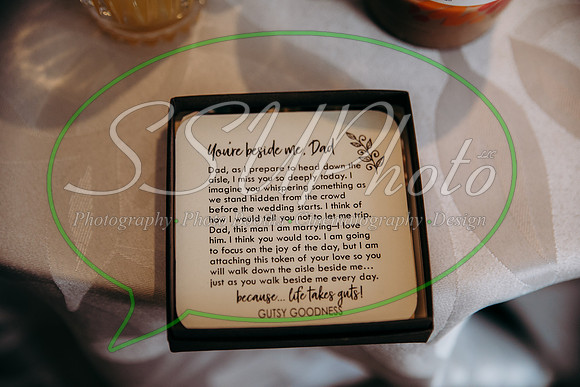 You're beside me, Dad
Dad, as I prepare to head down the
aisle, I miss you so deeply today. I
imagine you whispering something as
we stand hidden from the crowd
before the wedding starts. I think of
how I would tell you not to let me trip.
Dad, this man I am marrying—I love
him. I think you would too. I am going
to focus on the joy of the day, but I am
attaching this token of your love so you
will walk down the aisle beside me...
just as you walk beside me every day.
because... life takes guts!
GUTSY GOODNESS
SSUPhoto LLC
Photography Design